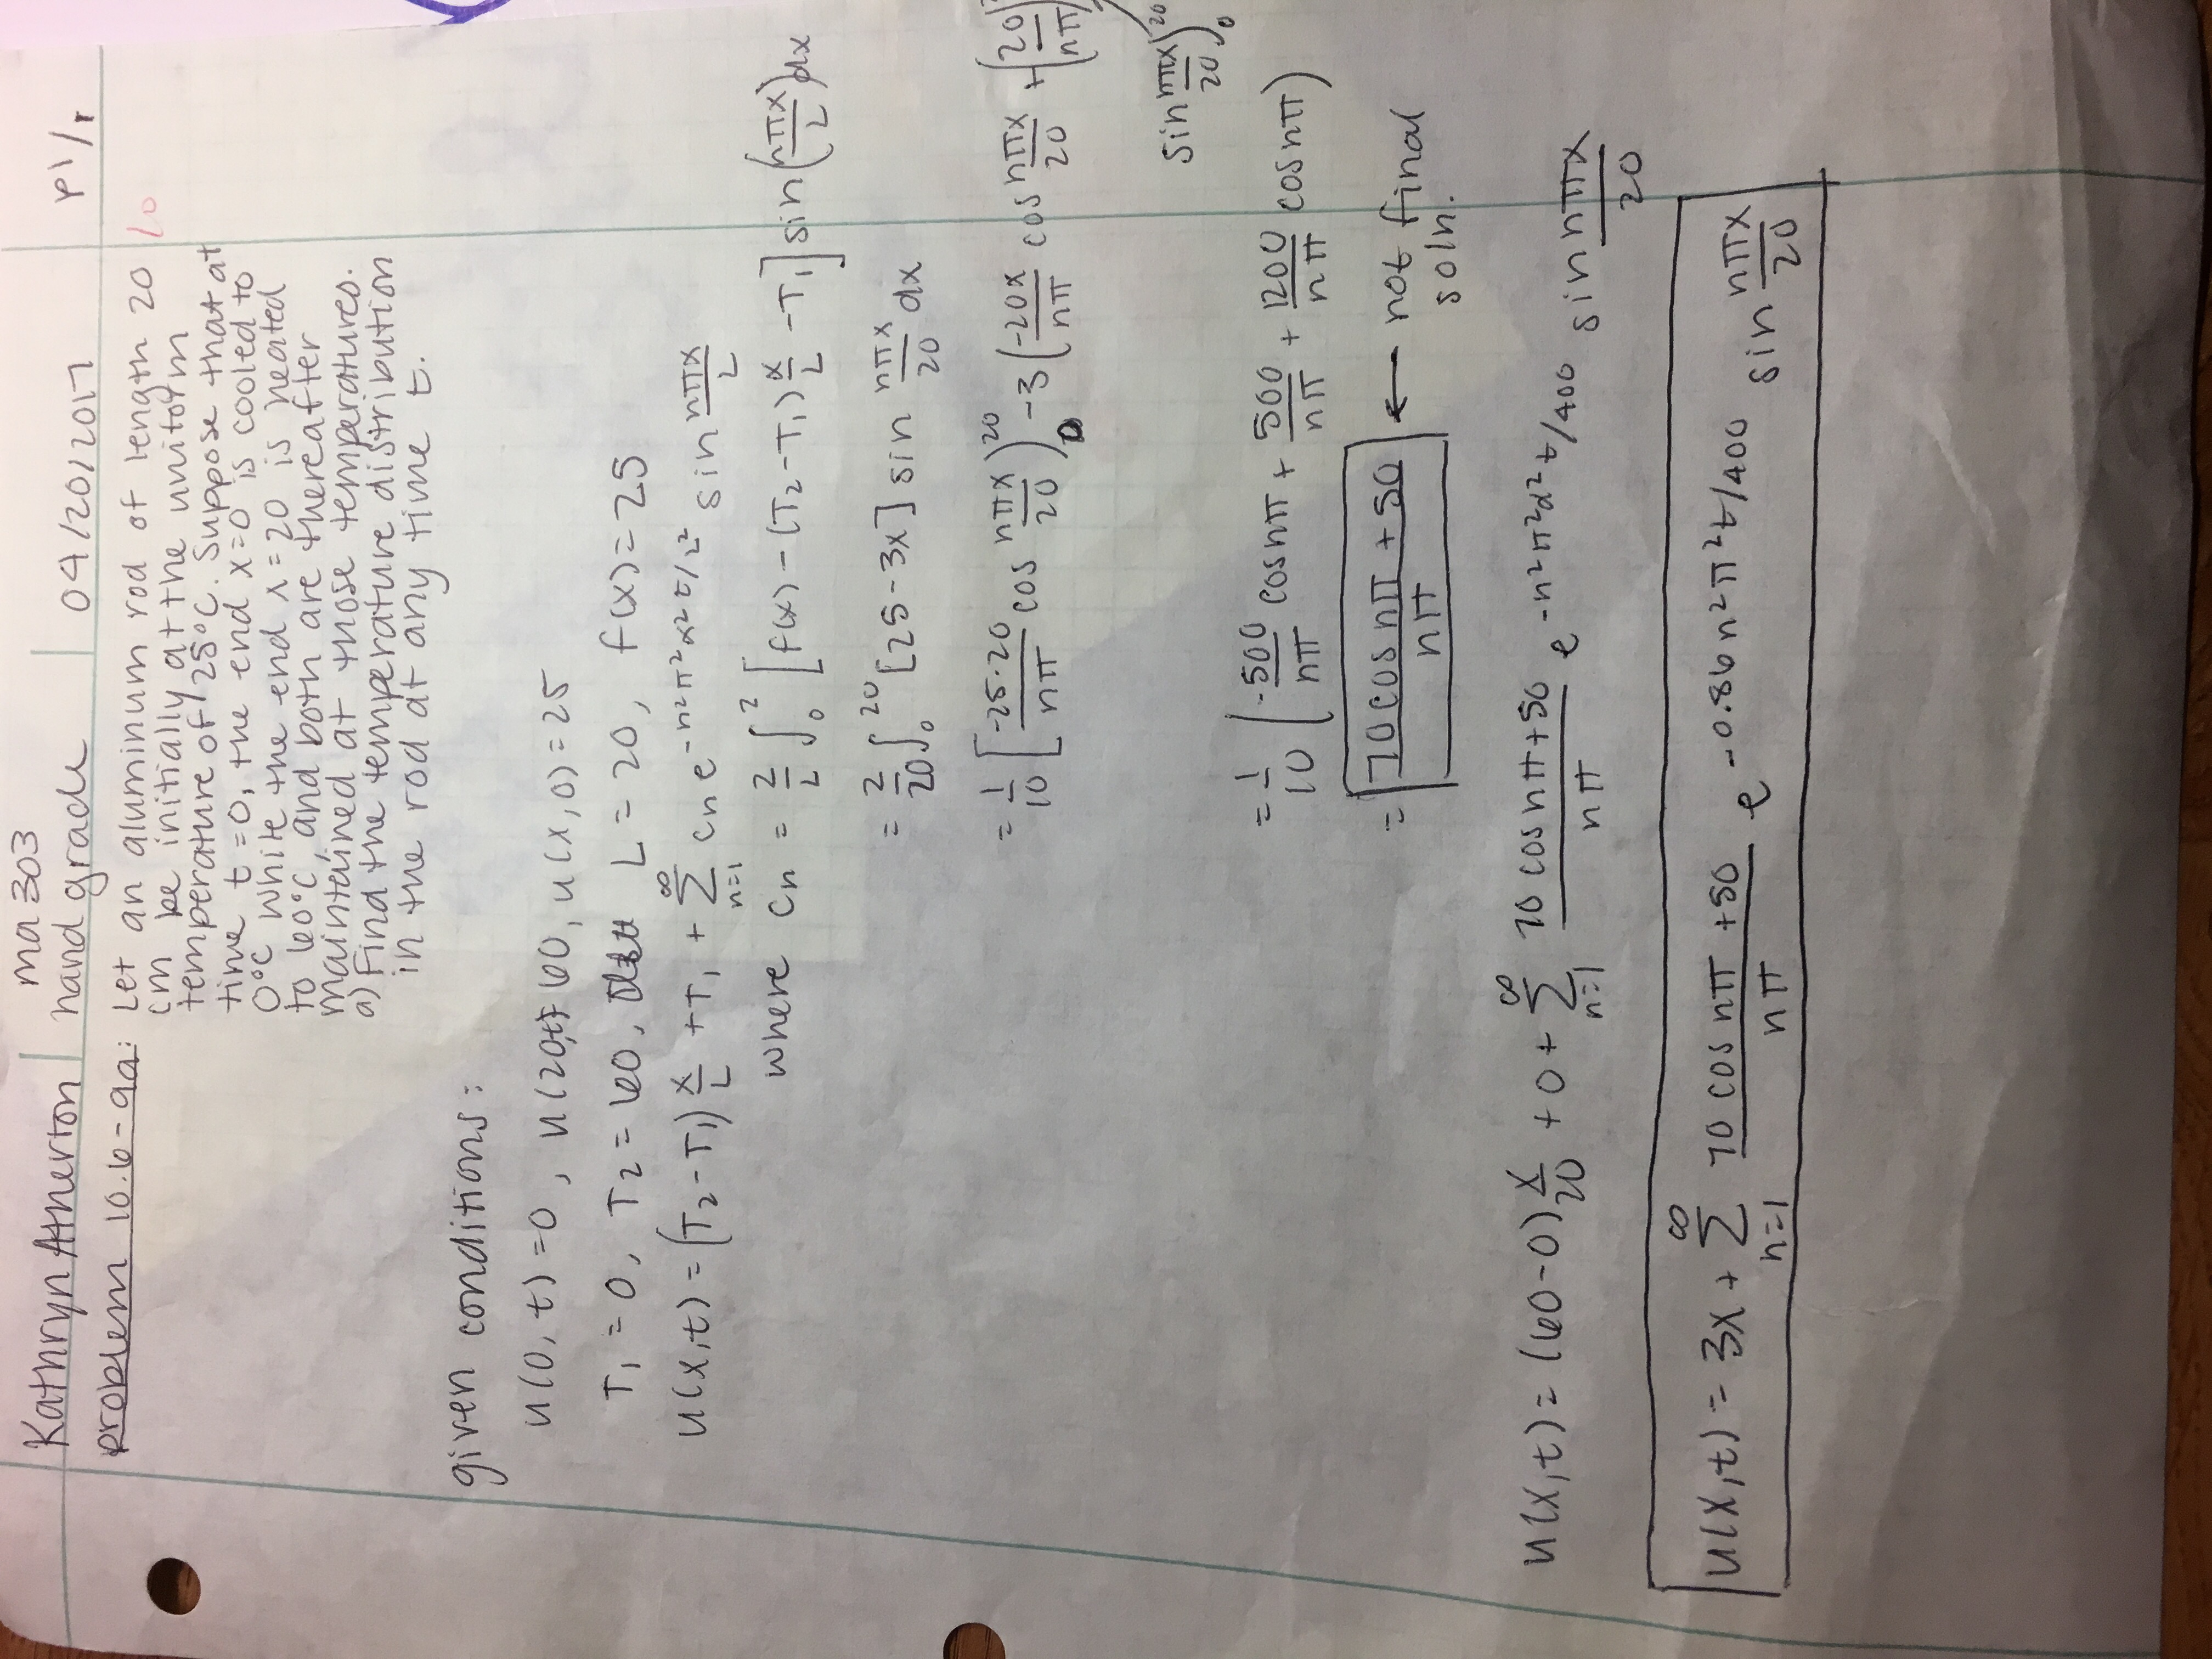 Kathryn Atherton
ma 303
hand grade
04/20/2017
p1/1
problem 10.6-9a: Let an aluminum rod of length 20
10
cm be initially at the uniform
temperature of 25°C. Suppose that at
time t=0, the end x=0 is cooled to
0°C while the end x=20 is heated
to 60°C, and both are thereafter
maintained at those temperatures.
a) Find the temperature distribution
in the rod at any time t.
given conditions:
u(0, t)=0, u(20,t)=60, u(x,0)=25
T₁=0, T₂=60, L=20, f(x)=25
u(x,t) = (T₂-T₁) x/L + T₁ + ∑ n=1 ∞ cn e^(-n²π²α²t/L²) sin nπx/L
where cn = 2/L ∫₀² [f(x)-(T₂-T₁) x/L -T₁] sin(nπx/L)dx
= 2/20 ∫₀²⁰ [25-3x] sin nπx/20 dx
= 1/10 [-25·20/nπ cos nπx/20)₀²⁰ -3(-20x/nπ cos nπx/20 + (20/nπ)
sin nπx/20)₀²⁰
= 1/10 (-500/nπ cos nπ + 500/nπ + 1200/nπ cos nπ)
= 70 cos nπ + 50 / nπ ← not final
soln.
u(x,t) = (60-0) x/20 + 0 + ∑ n=1 ∞ 70 cos nπ+50 / nπ e^(-n²π²α²t/400) sin nπx/20
u(x,t) = 3x + ∑ n=1 ∞ 70 cos nπ +50 / nπ e^(-0.86n²π²t/400) sin nπx/20